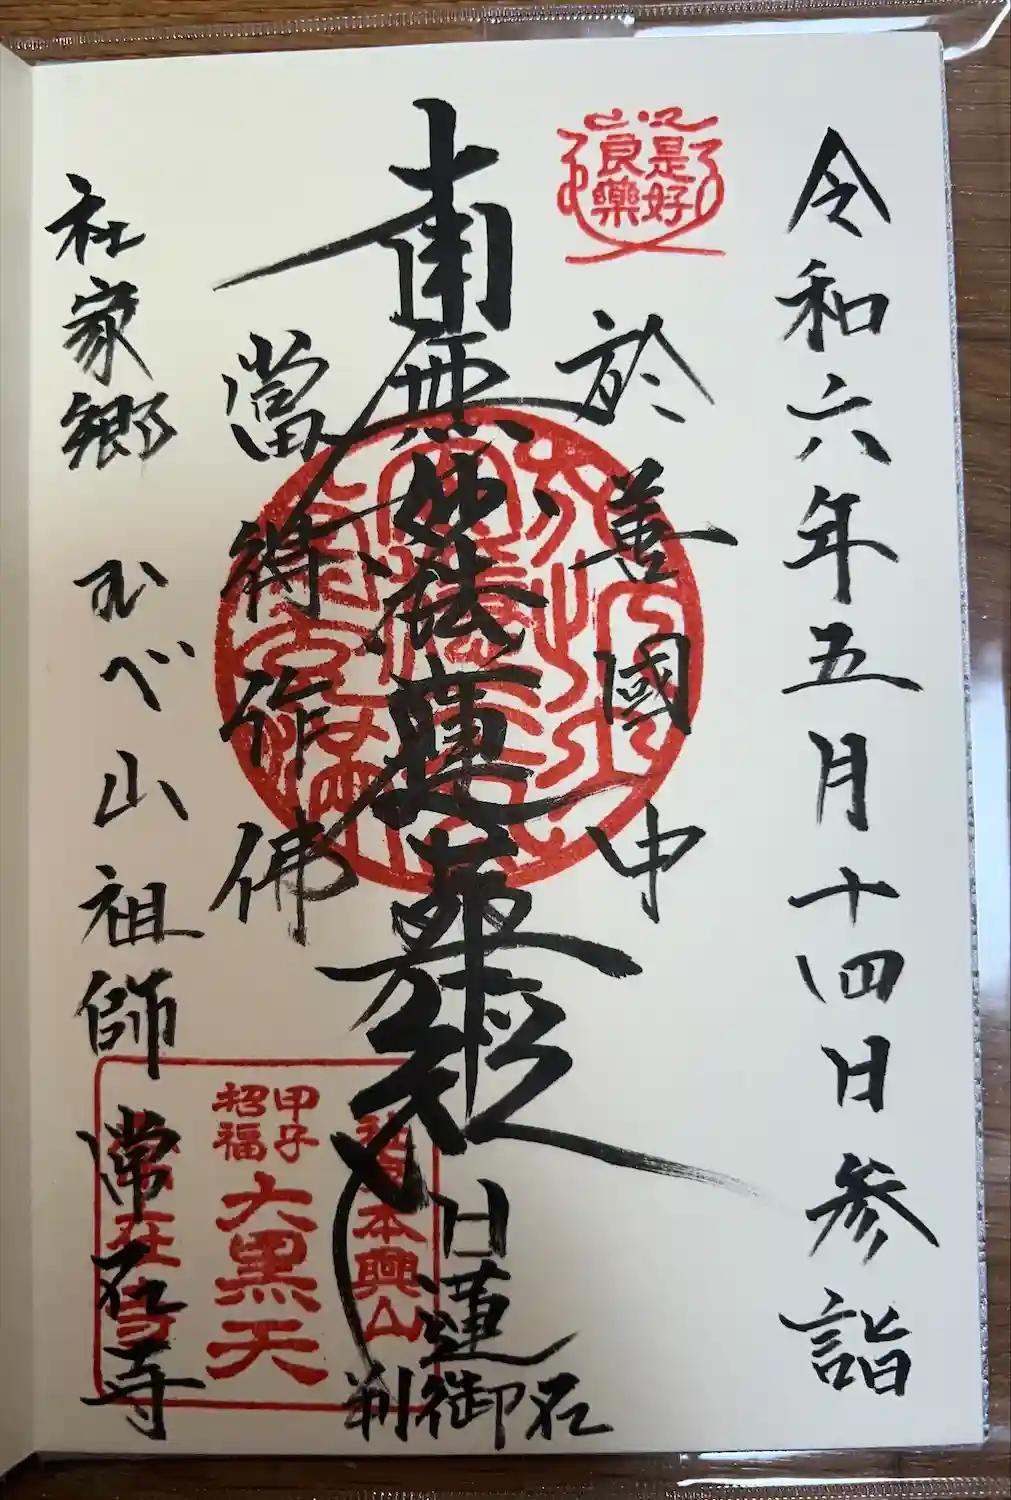 令和六年五月十四日参詣
是好
良藥
於善國中
南無妙法蓮華経
日蓮
在御判
當得作佛
甲子
招福
大黒天
本興山
社家郷むべ山祖師常在寺